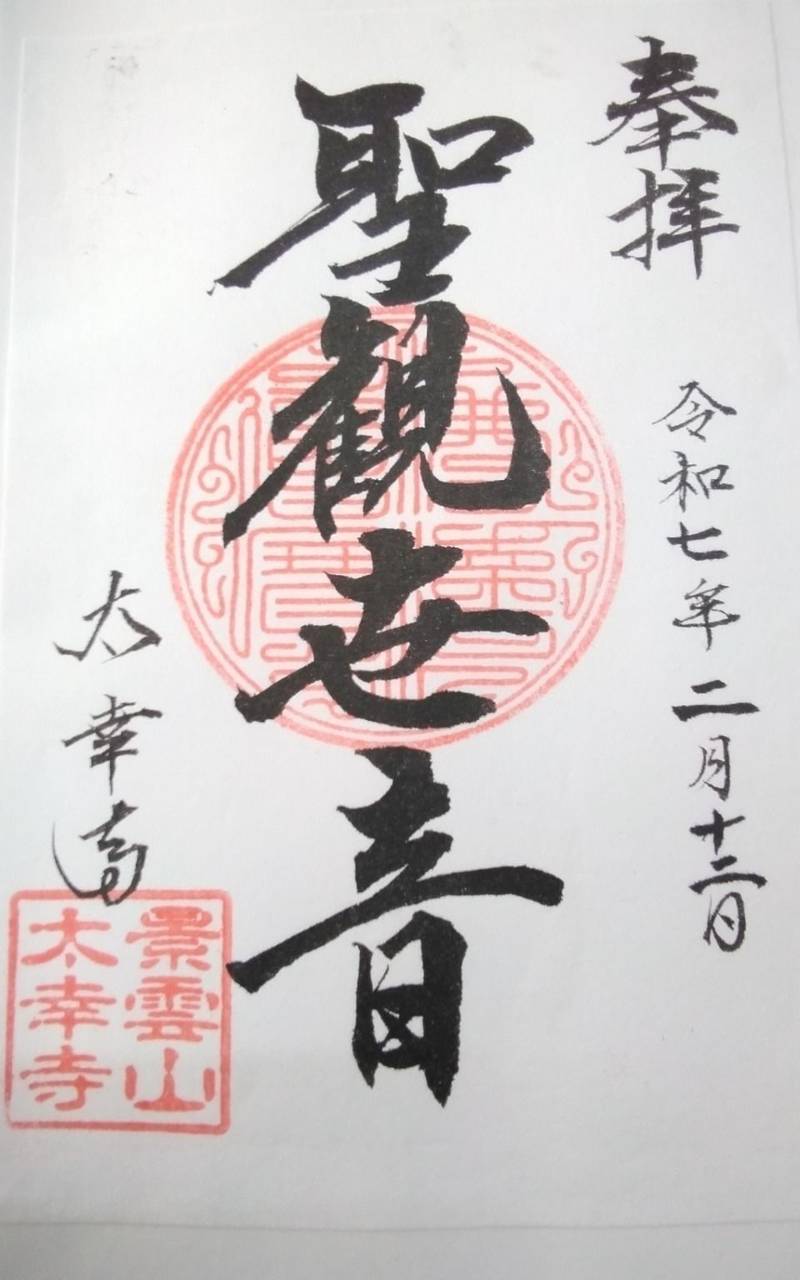 奉拝
令和七年二月十二日
聖観世音
太幸寺
景雲山
太幸寺